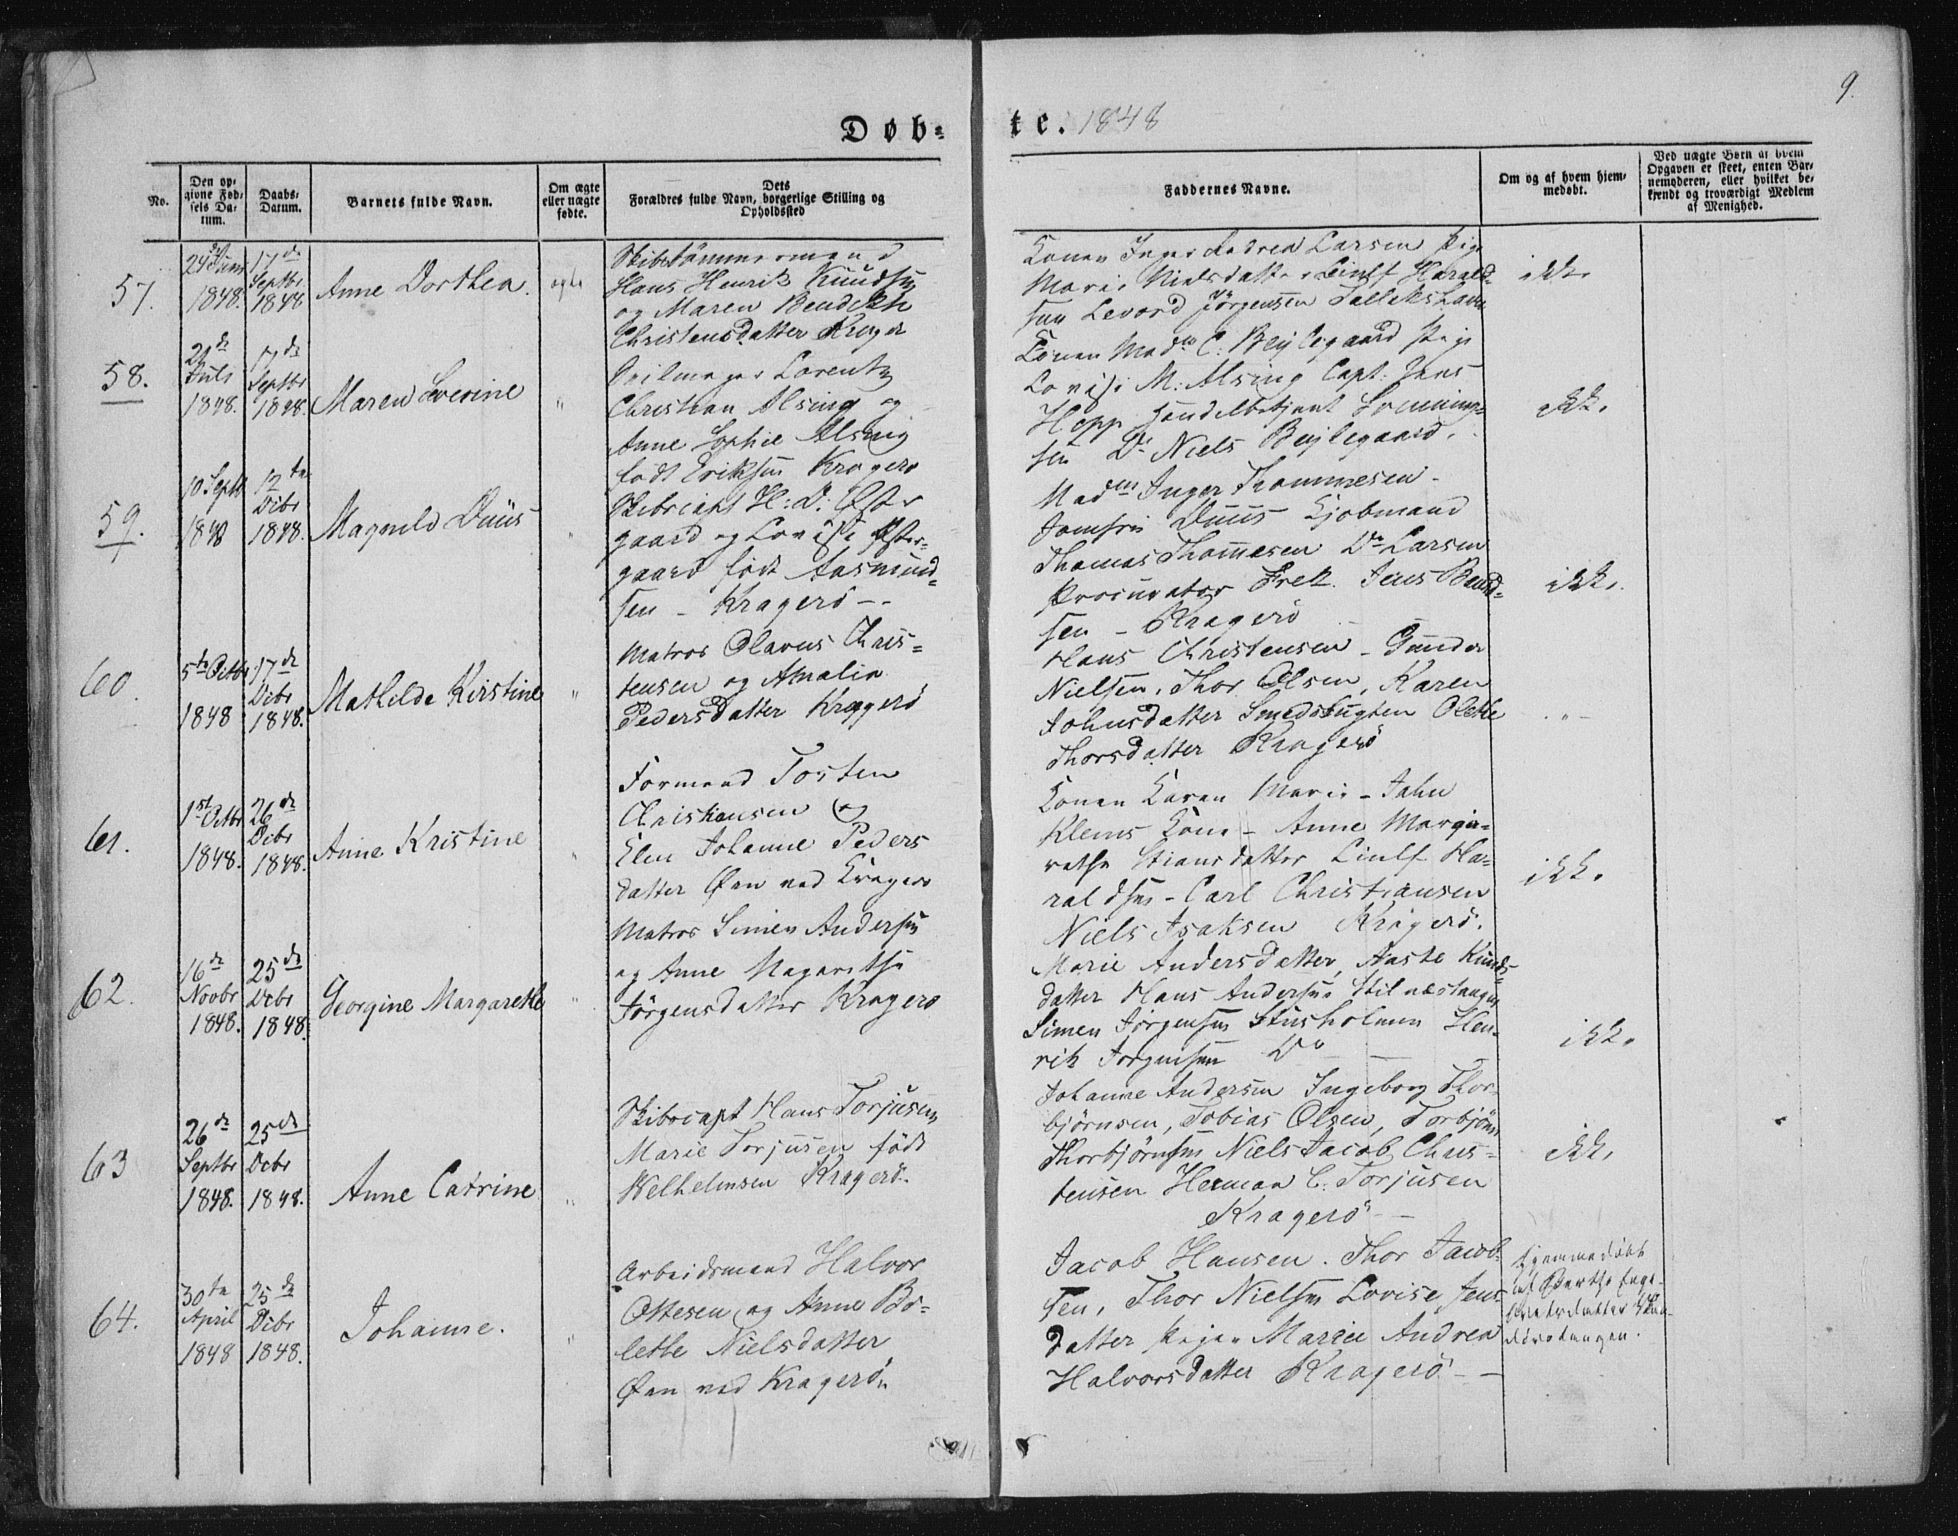 9.
Døb-
te. 1848
No.
Den op-
givne Fød-
sels Da-
tum.
Daabs-
Datum.
Barnets fulde Navn.
Om ægte
eller uægte
fødte.
Dets
Forældres fulde Navn, borgerlige Stilling og
Opholdssted
Faddernes Navne.
Om og af hvem hjem-
medøbt.
Ved uægte Børn af hvem
Opgaven er skeet, enten Bar-
nemoderen, eller hvilket be-
kjendt og troværdigt Medlem
af Menighed.
57.
1848.
17de
Septbr
1848
Anne Dorthea.
ægte
Skibstømmermand
Hans Henrik Knudsen
og Maren Bendikte
Christensdatter Kragerø
Konen Inger Andrea Larsen Pige
Marie Nielsdatter Linlf Harald-
sen Levord Jørgensen
ikke
58.
Juli
1848.
17de
Septbr
1848.
Maren Severine
"
Seilmager Lorentz
Christian Alsing og
Anne Sophie Alsing
født Eriksen Kragerø
Konen Madm C: Beylegaard Pige
Lovise M: Alsing Capt: Jens
Hopp Handelsbetjent
sen Do Niels Beylegaard.
ikke.
59.
10 Septbr
1848
12te
Dcbr
1848.
Magnild Duüs
"
Skibscapt H: D: Øster-
gaard og Lovise Øster-
gaard født Aasmund-
sen - Kragerø -
Madm Inger Thommesen -
Jomfru Duus Kjøbmand
Thomas Thommesen Do Larsen
Procurator Frek. Jens Bend-
sen - Kragerø
ikke.
60.
5te Octbr
1848
17de
Dcbr
1848.
Mathilde Kirstine
"
Matros Olavus Chris-
tensen og Amalia
Pedersdatter Kragerø
Hans Christensen - Gunder
Nielsen, Thor Olsen, Karen
Johnsdatter Smedsbugten Olette
Thorsdatter Kragerø
"
61.
1ste Octbr
1848.
26de
Dcbr
1848.
Anne Kristine
"
Formand Tosten
Christiansen og
Elen Johanne Peders
datter Øen ved Kragerø
Konen Karen Marie - Jahn
Klems Kone - Anne Marga-
rethe Stiansdatter Linlf Ha-
raldsen - Carl Christiansen
Niels Isaksen Kragerø.
ikke.
62.
16de
Novbr
1848.
25de
Dcbr
1848.
Georgine Margarethe
"
Matros Simen Andersen
og Anne Magarethe
Jørgensdatter Kragerø
Marie Andersdatter, Aaste Knuds-
datter Hans Andersen Stilnæstangen
Simen Jørgensen Stusholmen Hen-
rik Jørgensen Do
ikke.
63
26de
Septbr
1848.
25de
Dcbr
1848.
Anne Catrine
"
Skibscapt Hans Torjusen,
Marie Torjusen født
Welhelmsen Kragerø.
Johanne Andersen Ingeborg Thor-
bjørnsen, Tobias Olsen, Torbjørn
Thorbjørnsen Niels Jacob Chris-
tensen Herman C. Torjusen
Kragerø -
ikke.
64.
30te
April
1848
25de
Dcbr
1848.
Johanne.
"
Arbeidsmand Halvor
Ottesen og Anne Bo-
lette Nielsdatter
Øen ved Kragerø.
Jacob Hansen. Thor Jacob-
sen, Thor Nielsen Lovise Jens-
datter Pigen Marie Andrea
Halvorsdatter Kragerø -
hjemmedøbt
af Berthe Inge-